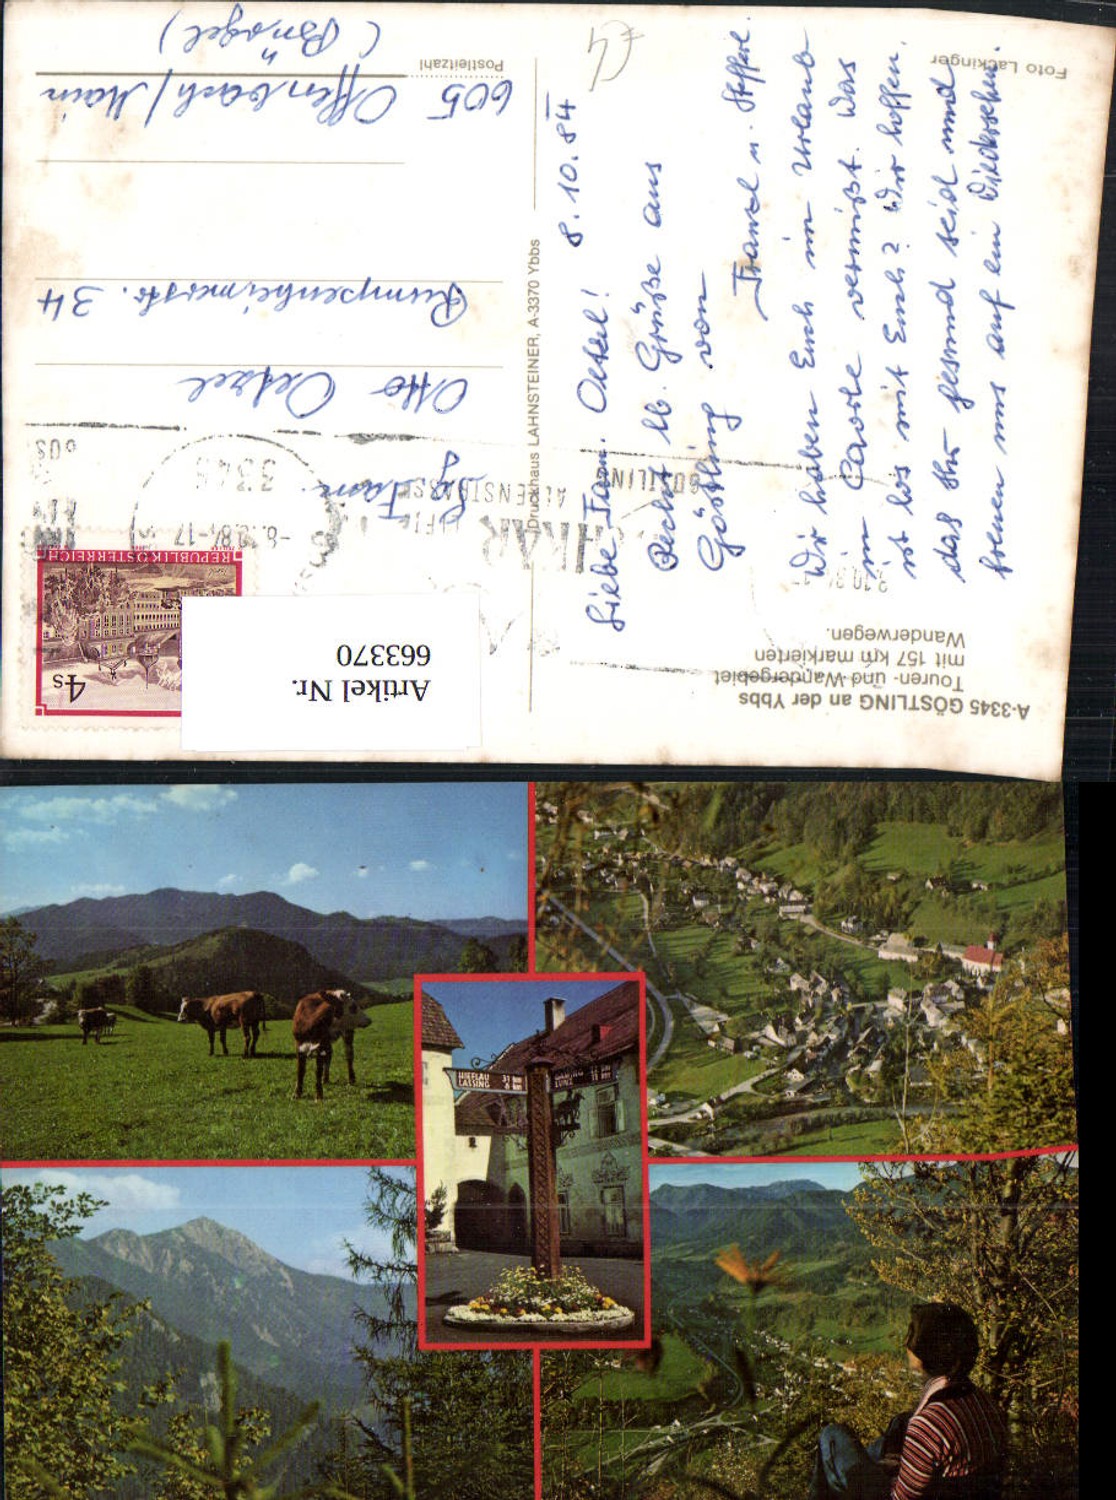 A-3345 GÖSTLING an der Ybbs
Touren- und Wandergebiet
mit 157 km markierten
Wanderwegen.
8.10.84
Liebe Fam. Oetzel!
Recht lb. Grüße aus
Göstling von
Franzl u. Stefferl.
Wir haben Euch im Urlaub
in Caorle vermißt. Was
ist los mit Euch? Wir hoffen,
das Ihr gesund seid und
freuen uns auf ein Wiedersehen.
Foto Lackinger
Druckhaus LAHNSTEINER, A-3370 Ybbs
REPUBLIK ÖSTERREICH
4s
Artikel Nr.
663370
3345
GÖSTLING
Fam.
Otto Oetzel
Rumpenheimerstr. 34
605 Offenbach/Main
Postleitzahl
(Bürgel)
WIEFLAU 31
LASSING 6